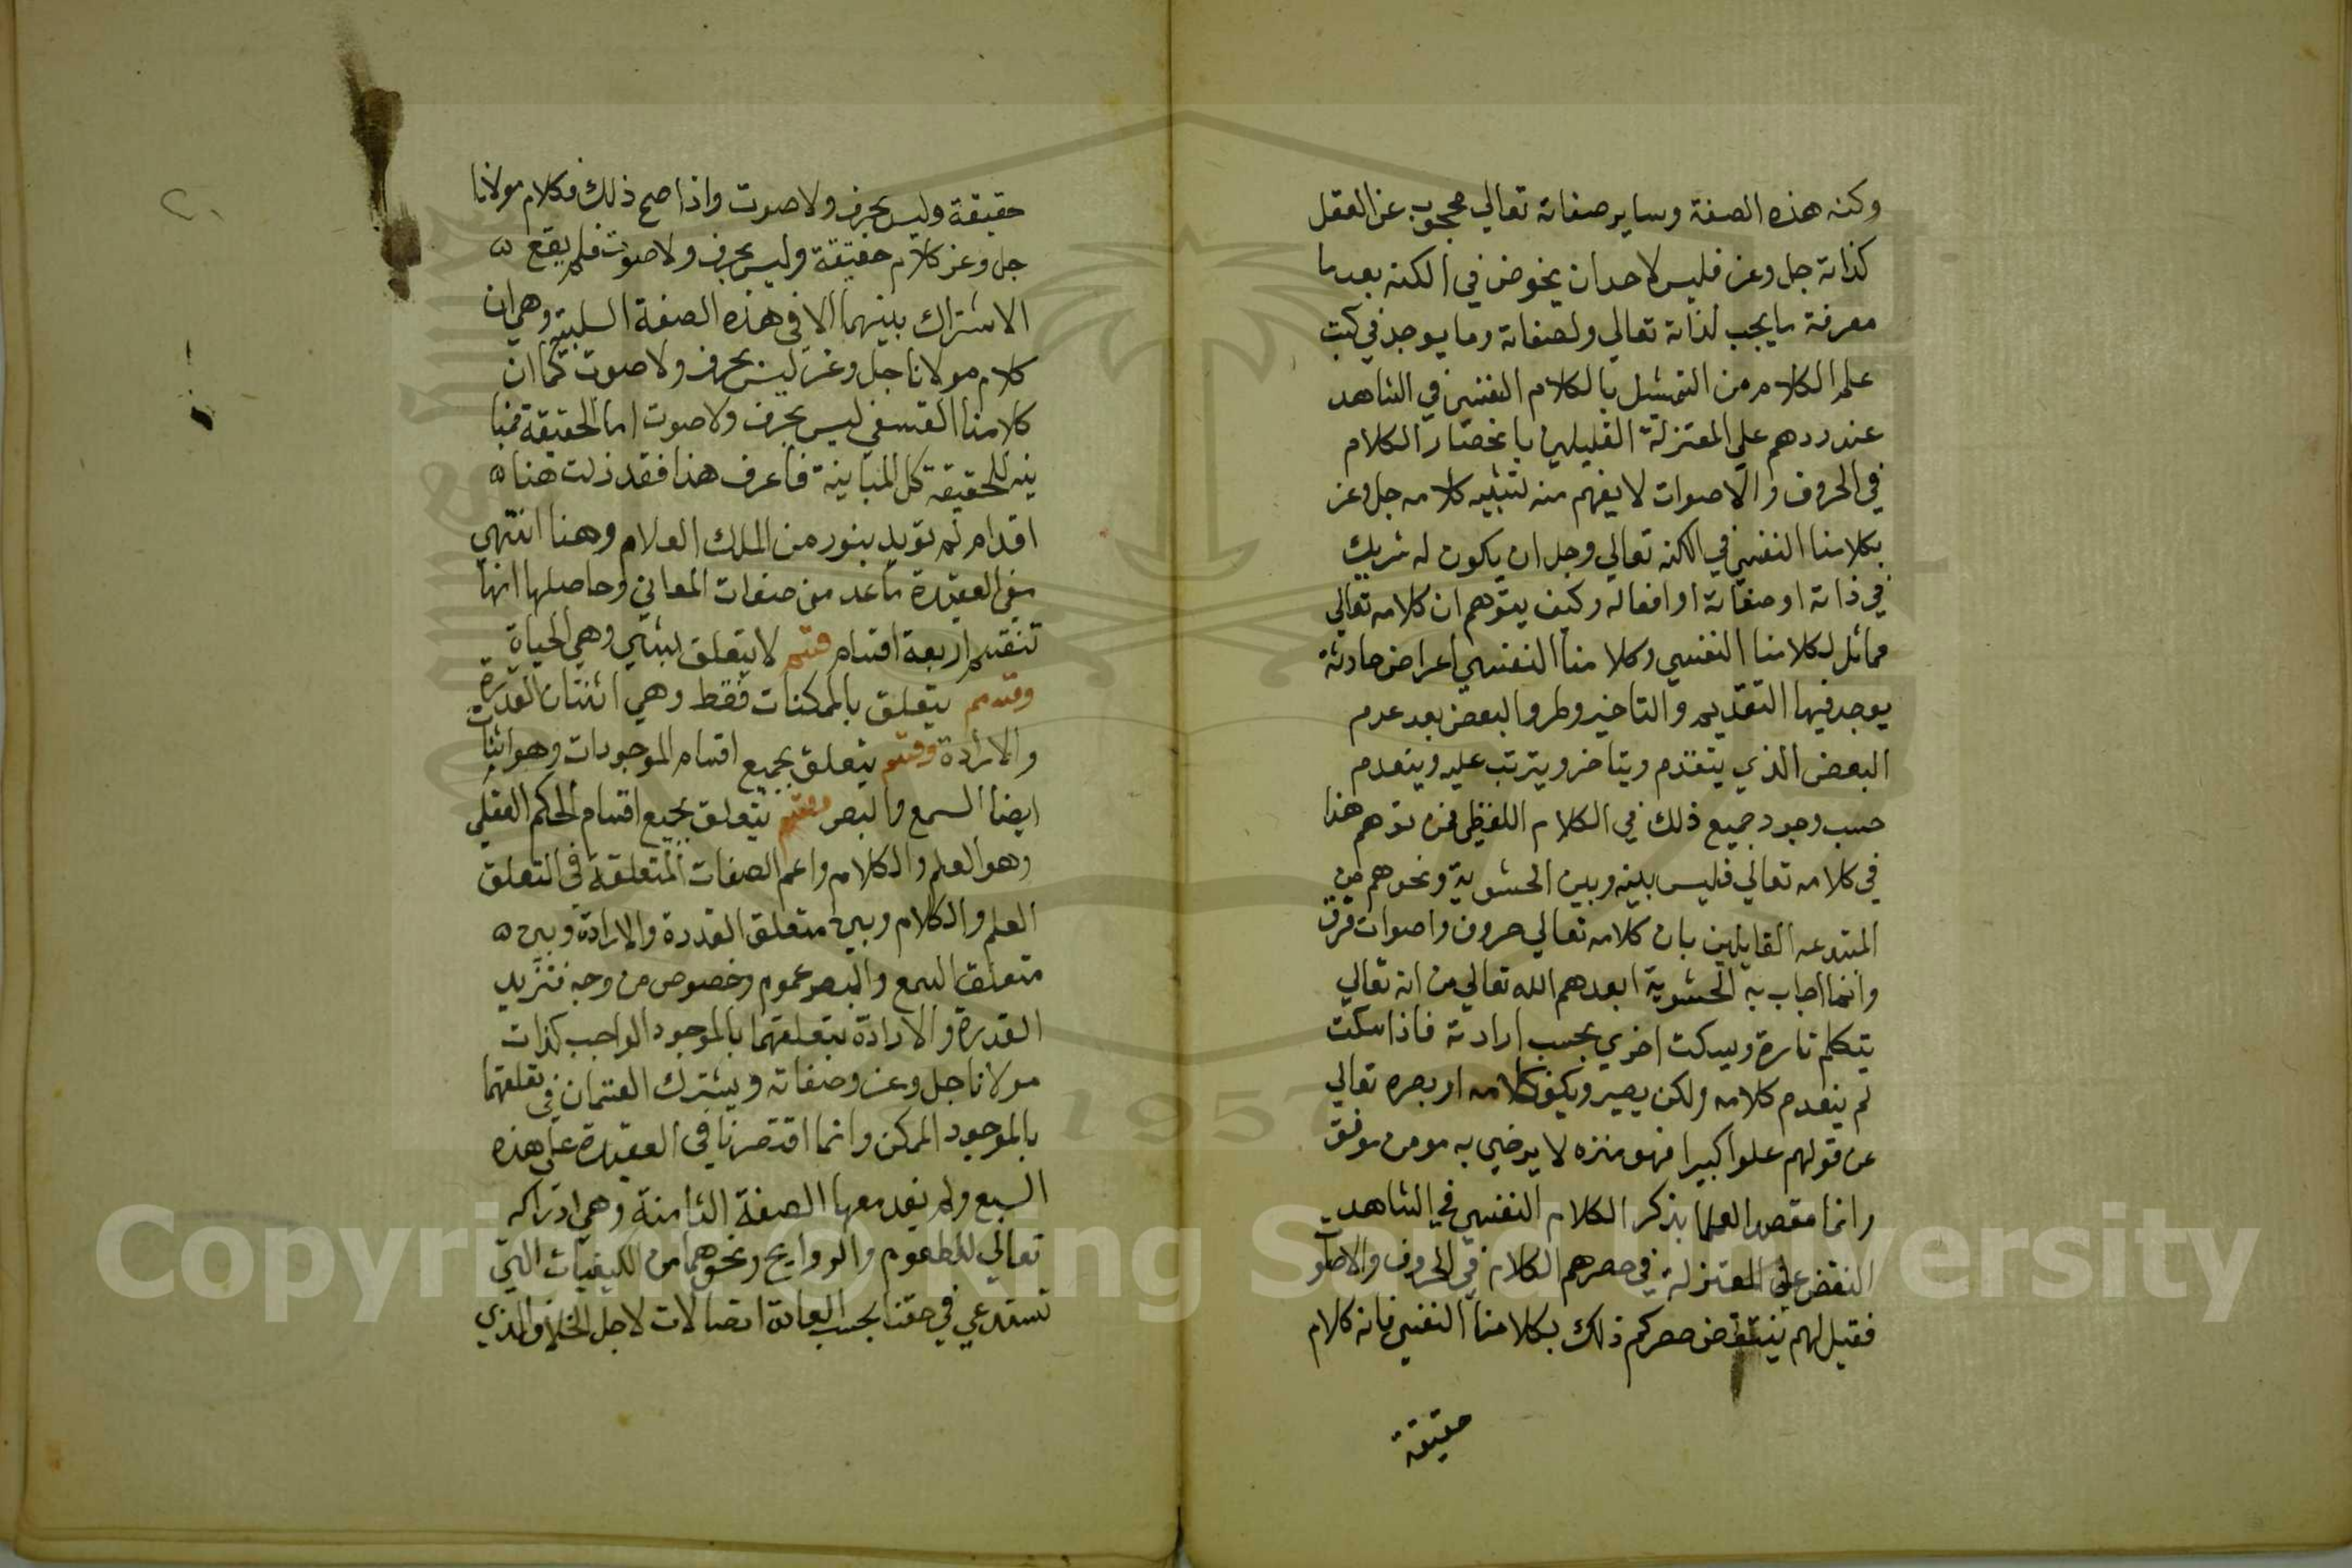 وكنه هذه الصفة وساير صفاته تعالي محجوب عن العقل
كذاته جل وعز فليس لاحد ان يخوض في الكنه بعد ما
معرفة ما يجب لذاته تعالي ولصفاته وما يوجد في كتب
علم الكلام من التمثيل بالكلام النفسي في الشاهد
عند ردهم علي المعتزلة القايلين بانحصار الكلام
في الحروف والاصوات لا يفهم منه تشبيه كلامه جل وعز
بكلامنا النفسي في الكنه تعالي وجل ان يكون له شريك
في ذاته او صفاته او افعاله وكيف يتوهم ان كلامه تعالي
مماثل لكلامنا النفسي وكلامنا النفسي اعراض حادثة
يوجد فيها التقديم والتاخير وطرو البعض بعد عدم
البعض الذي يتقدم ويتاخر ويترتب عليه وينعدم
حسب وجود جميع ذلك في الكلام اللفظي فمن توهم هذا
في كلامه تعالي فليس بينه وبين الحشوية ونحوهم من
المبتدعه القايلين بان كلامه تعالي حروف واصوات فرق
وانما اجاب به الحشوية ابعدهم الله تعالي من انه تعالي
يتكلم تارة ويسكت اخري بحسب ارادته فاذا سكت
لم ينعدم كلامه ولكن يصير وكيف كلامه او بصره تعالي
عن قولهم علوا كبيرا فهو منزه لا يرضي به مومن موفق
وانما مقصد العلما بذكر الكلام النفسي في الشاهد
النقض علي المعتزلة في حصرهم الكلام في الحروف والاصوات
فقيل لهم ينتقض حصركم ذلك بكلامنا النفسي فانه كلام
حقيقة
حقيقة وليس بحرف ولا صوت واذا صح ذلك فكلام مولانا
جل وعز كلام حقيقة وليس بحرف ولا صوت فلم يقع
الاشتراك بينهما الا في هذه الصفة السلبية وهي ان
كلام مولانا جل وعز ليس بحرف ولا صوت كما ان
كلامنا النفسي ليس بحرف ولا صوت اما الحقيقة فمبا
ينه للحقيقه كل المباينة فاعرف هذا فقد زلت هنا
اقدام لم تويد بنور من الملك العلام وهنا انتهي
في العقيدة ما عد من صفات المعاني وحاصلها انها
تنقسم اربعة اقسام قسم لا يتعلق بشي وهي الحياة
وقسم يتعلق بالممكنات فقط وهي اثنتان القدرة
والارادة وقسم يتعلق بجميع اقسام الموجودات وهو اثنان
ايضا السمع والبصر وقسم يتعلق بجميع اقسام الحكم العقلي
وهو العلم والكلام واعم الصفات المتعلقة في التعلق
العلم والكلام وبين متعلق القدرة والارادة وبين
متعلق السمع والبصر عموم وخصوص من وجه فتزيد
القدرة والارادة بتعلقهما بالموجود الواجب كذات
مولانا جل وعز وصفاته ويشترك القسمان في تعلقهما
بالموجود الممكن وانما اقتصرنا في العقيدة علي هذه
السبع ولم نعد معها الصفة الثامنة وهي ادراكه
تعالي للطعوم والروايح ونحوهما من الكيفيات التي
تستدعي في حقنا بحسب العادة اتصالات لاجل الخلاف الذي
Copyright © King Saud University
1957